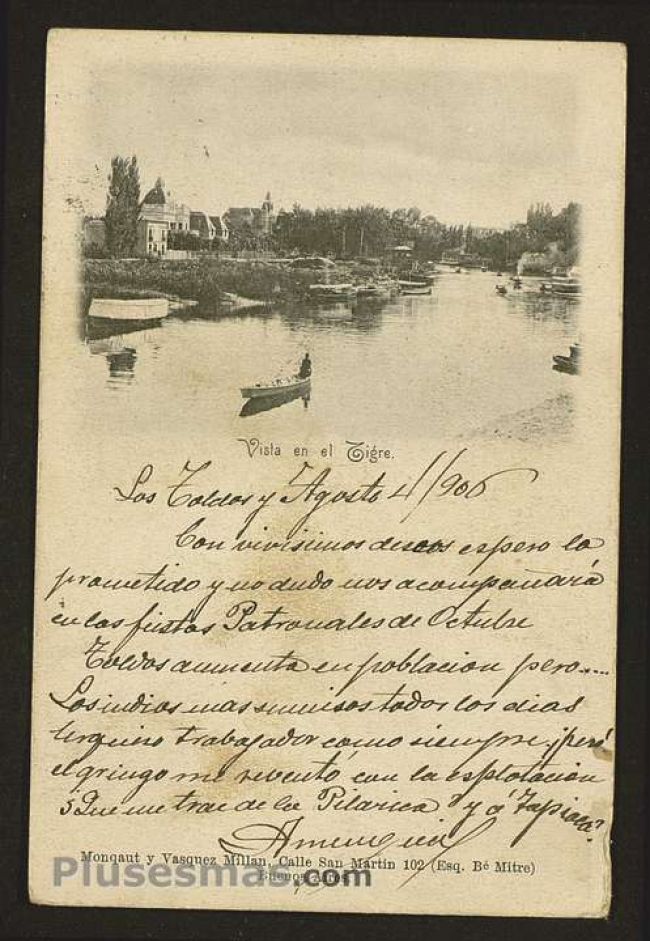 Vista en el Tigre.
Los Toldos y Agosto 4//906
Con vivisimos deseos espero lo
prometido y no dudo nos acompañará
en las fiestas Patronales de Octubre
Toldos aumenta en poblacion pero....
Los indios mas sumisos todos los dias
trabajador como siempre, ¡pero
el gringo me reventó con la esplotacion
Que me trae de la Pilarica y á Tapiola?
Monqaut y Vasquez Millan, Calle San Martin 102 (Esq. Bé Mitre)
Buenos Aires
Plusesmas.com